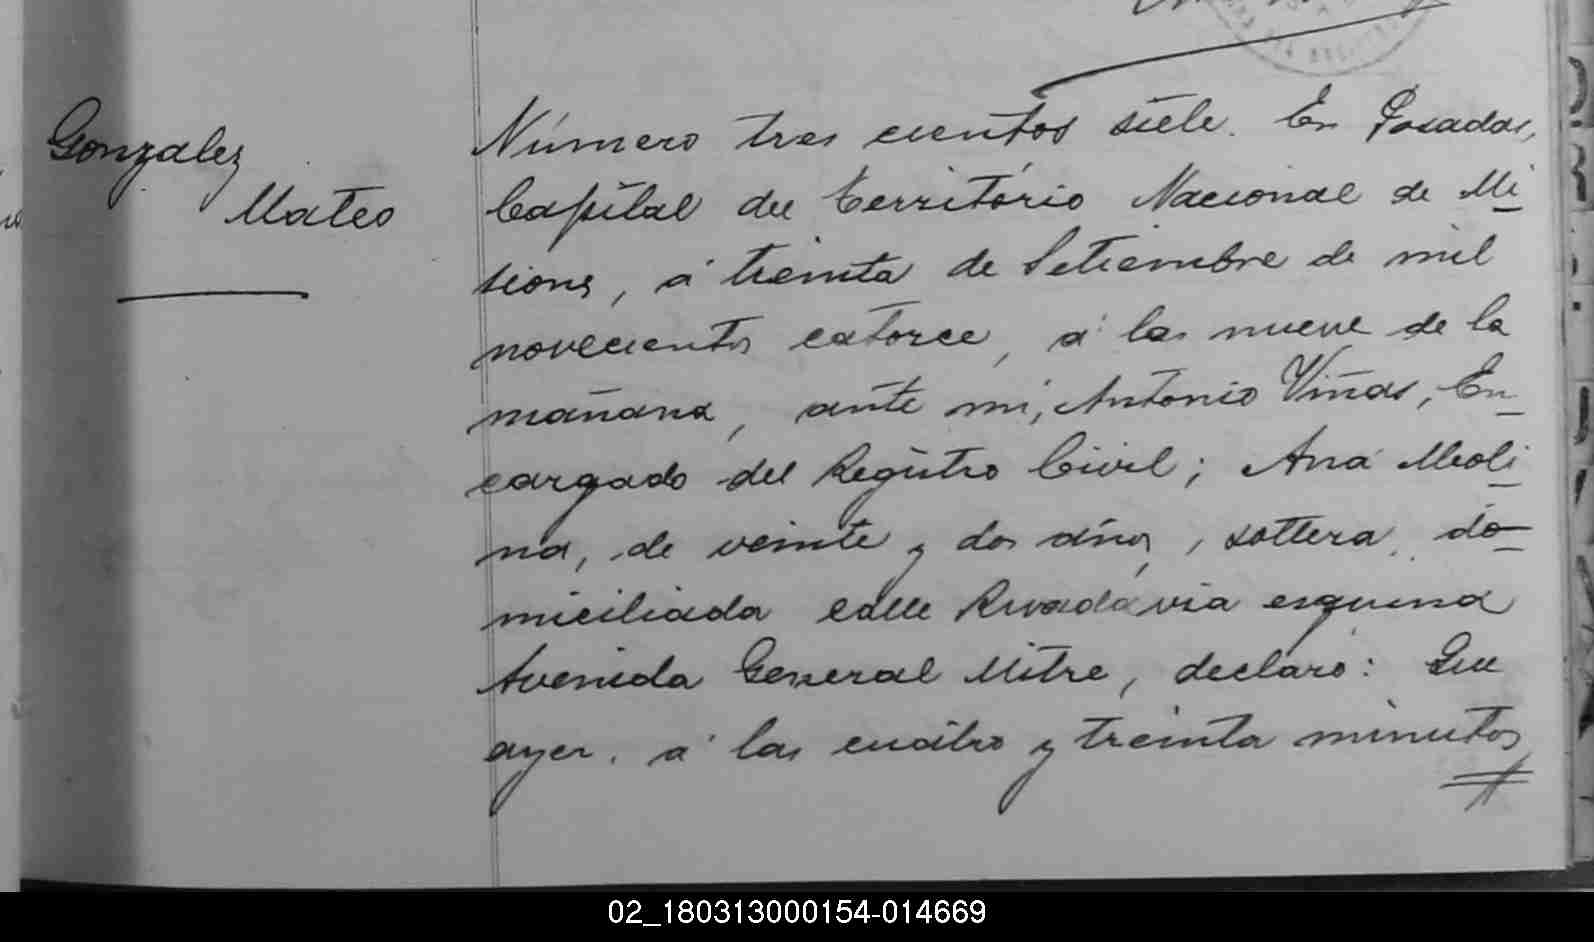 Gonzalez
Mateo
Número tres cientos siete. En Posadas,
Capital del Território Nacional de Mi
siones, á treinta de Setiembre de mil
novecientos catorce, á las nueve de la
mañana, ante mi, Antonio Viñas, En
cargado del Registro Civil; Ana Moli
na, de veinte y dos años, soltera, do
miciliada calle Rivadavia esquina
Avenida General Mitre, declaró: Que
ayer, á las cuatro y treinta minutos
02_180313000154-014669